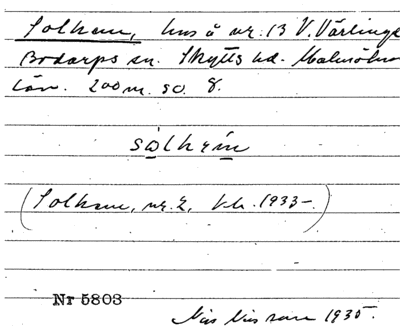 Solhem, hus å nr. 13 V. Värlinge
Bodarps sn. Skytts hd. Malmöhus
län. 200 m. so. 8.
sólhęm
(Solhem, nr. 2, kb. 1933-.)
Nr 5803
Nils Nilsson 1935.